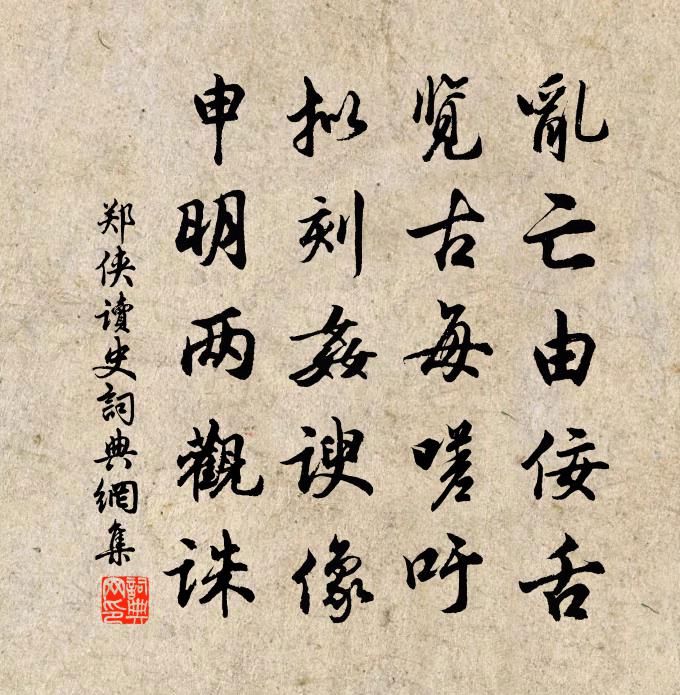 亂亡由佞舌
览古每嗟吁
拟刻姦諛像
申明两觀誅
郑侠讀史詞典網集
詞典网印